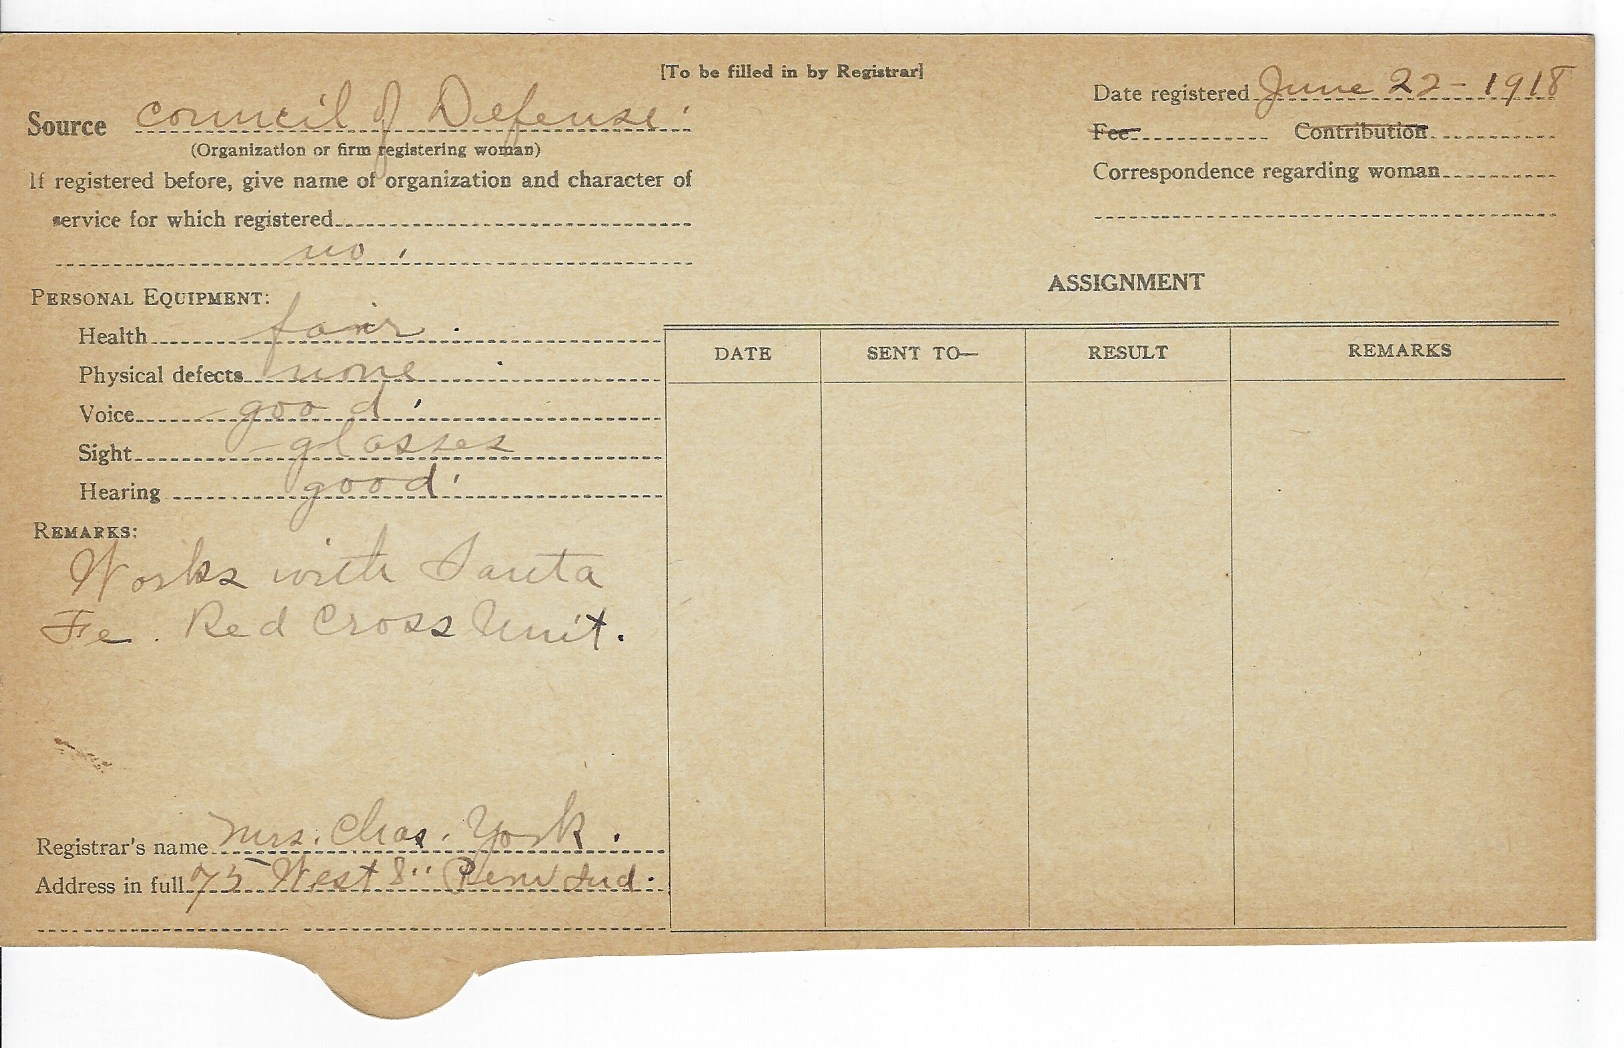 [To be filled in by Registrar]
Source Council of Defense.
(Organization or firm registering woman)
If registered before, give name of organization and character of
service for which registered
no.
Date registered June 22-1918
Fee Contribution
Correspondence regarding woman
PERSONAL EQUIPMENT:
Health fair.
Physical defects none
Voice good.
Sight glasses
Hearing good.
REMARKS:
Works with Santa
Fe. Red Cross Unit.
Registrar's name Mrs. Chas. York.
Address in full 75 West 8" Peru Ind.
ASSIGNMENT
DATE SENT TO— RESULT REMARKS